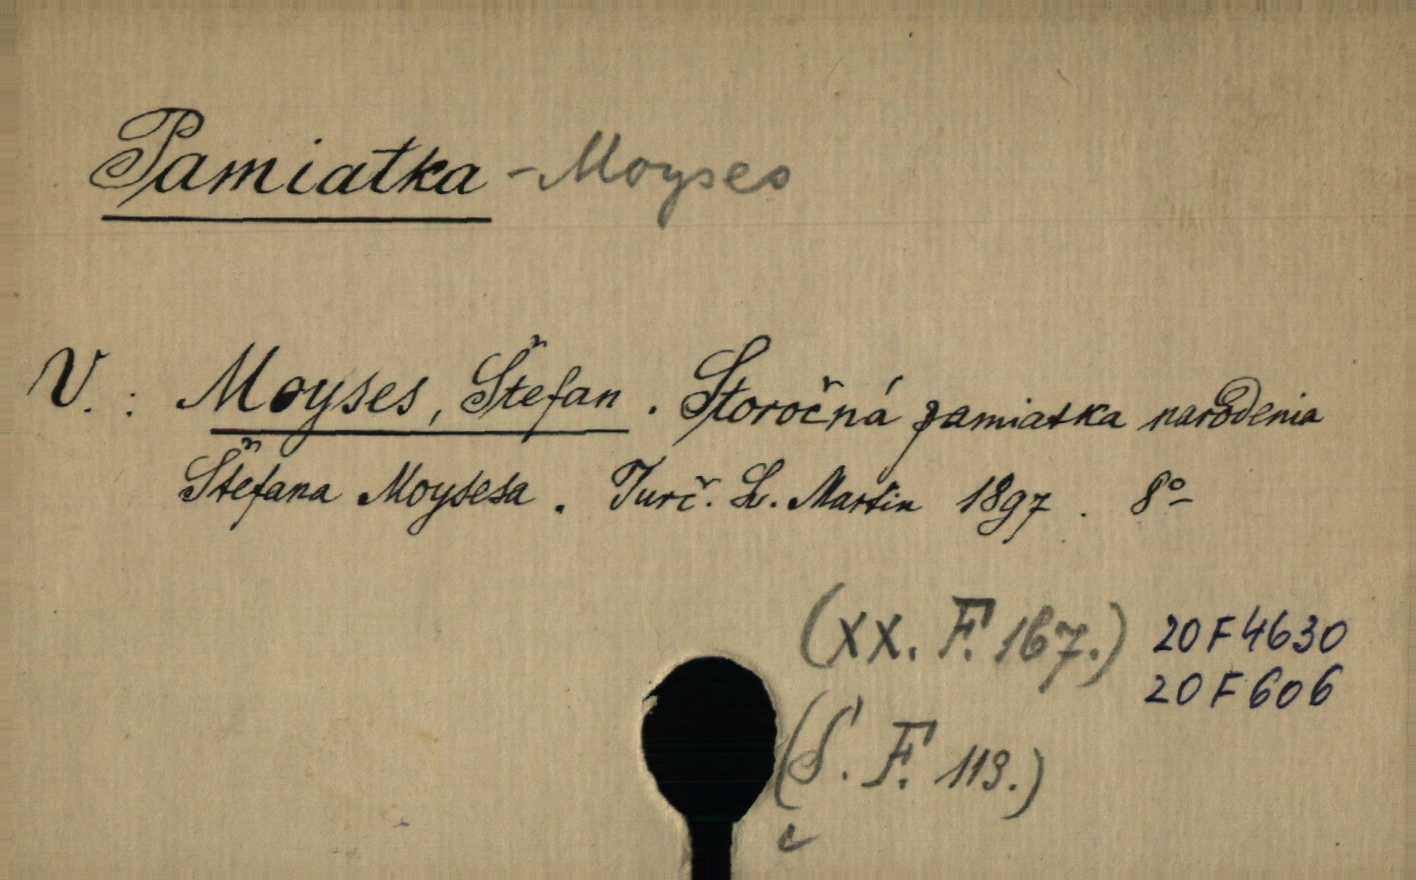 Pamiatka - Moyses
V. : Moyses, Štefan. Storočná pamiatka narodenia
Štefana Moysesa. Turč. Sv. Martin 1897. 8º
(XX. F. 167.) 20 F 4630
20 F 606
(S. F. 113.)